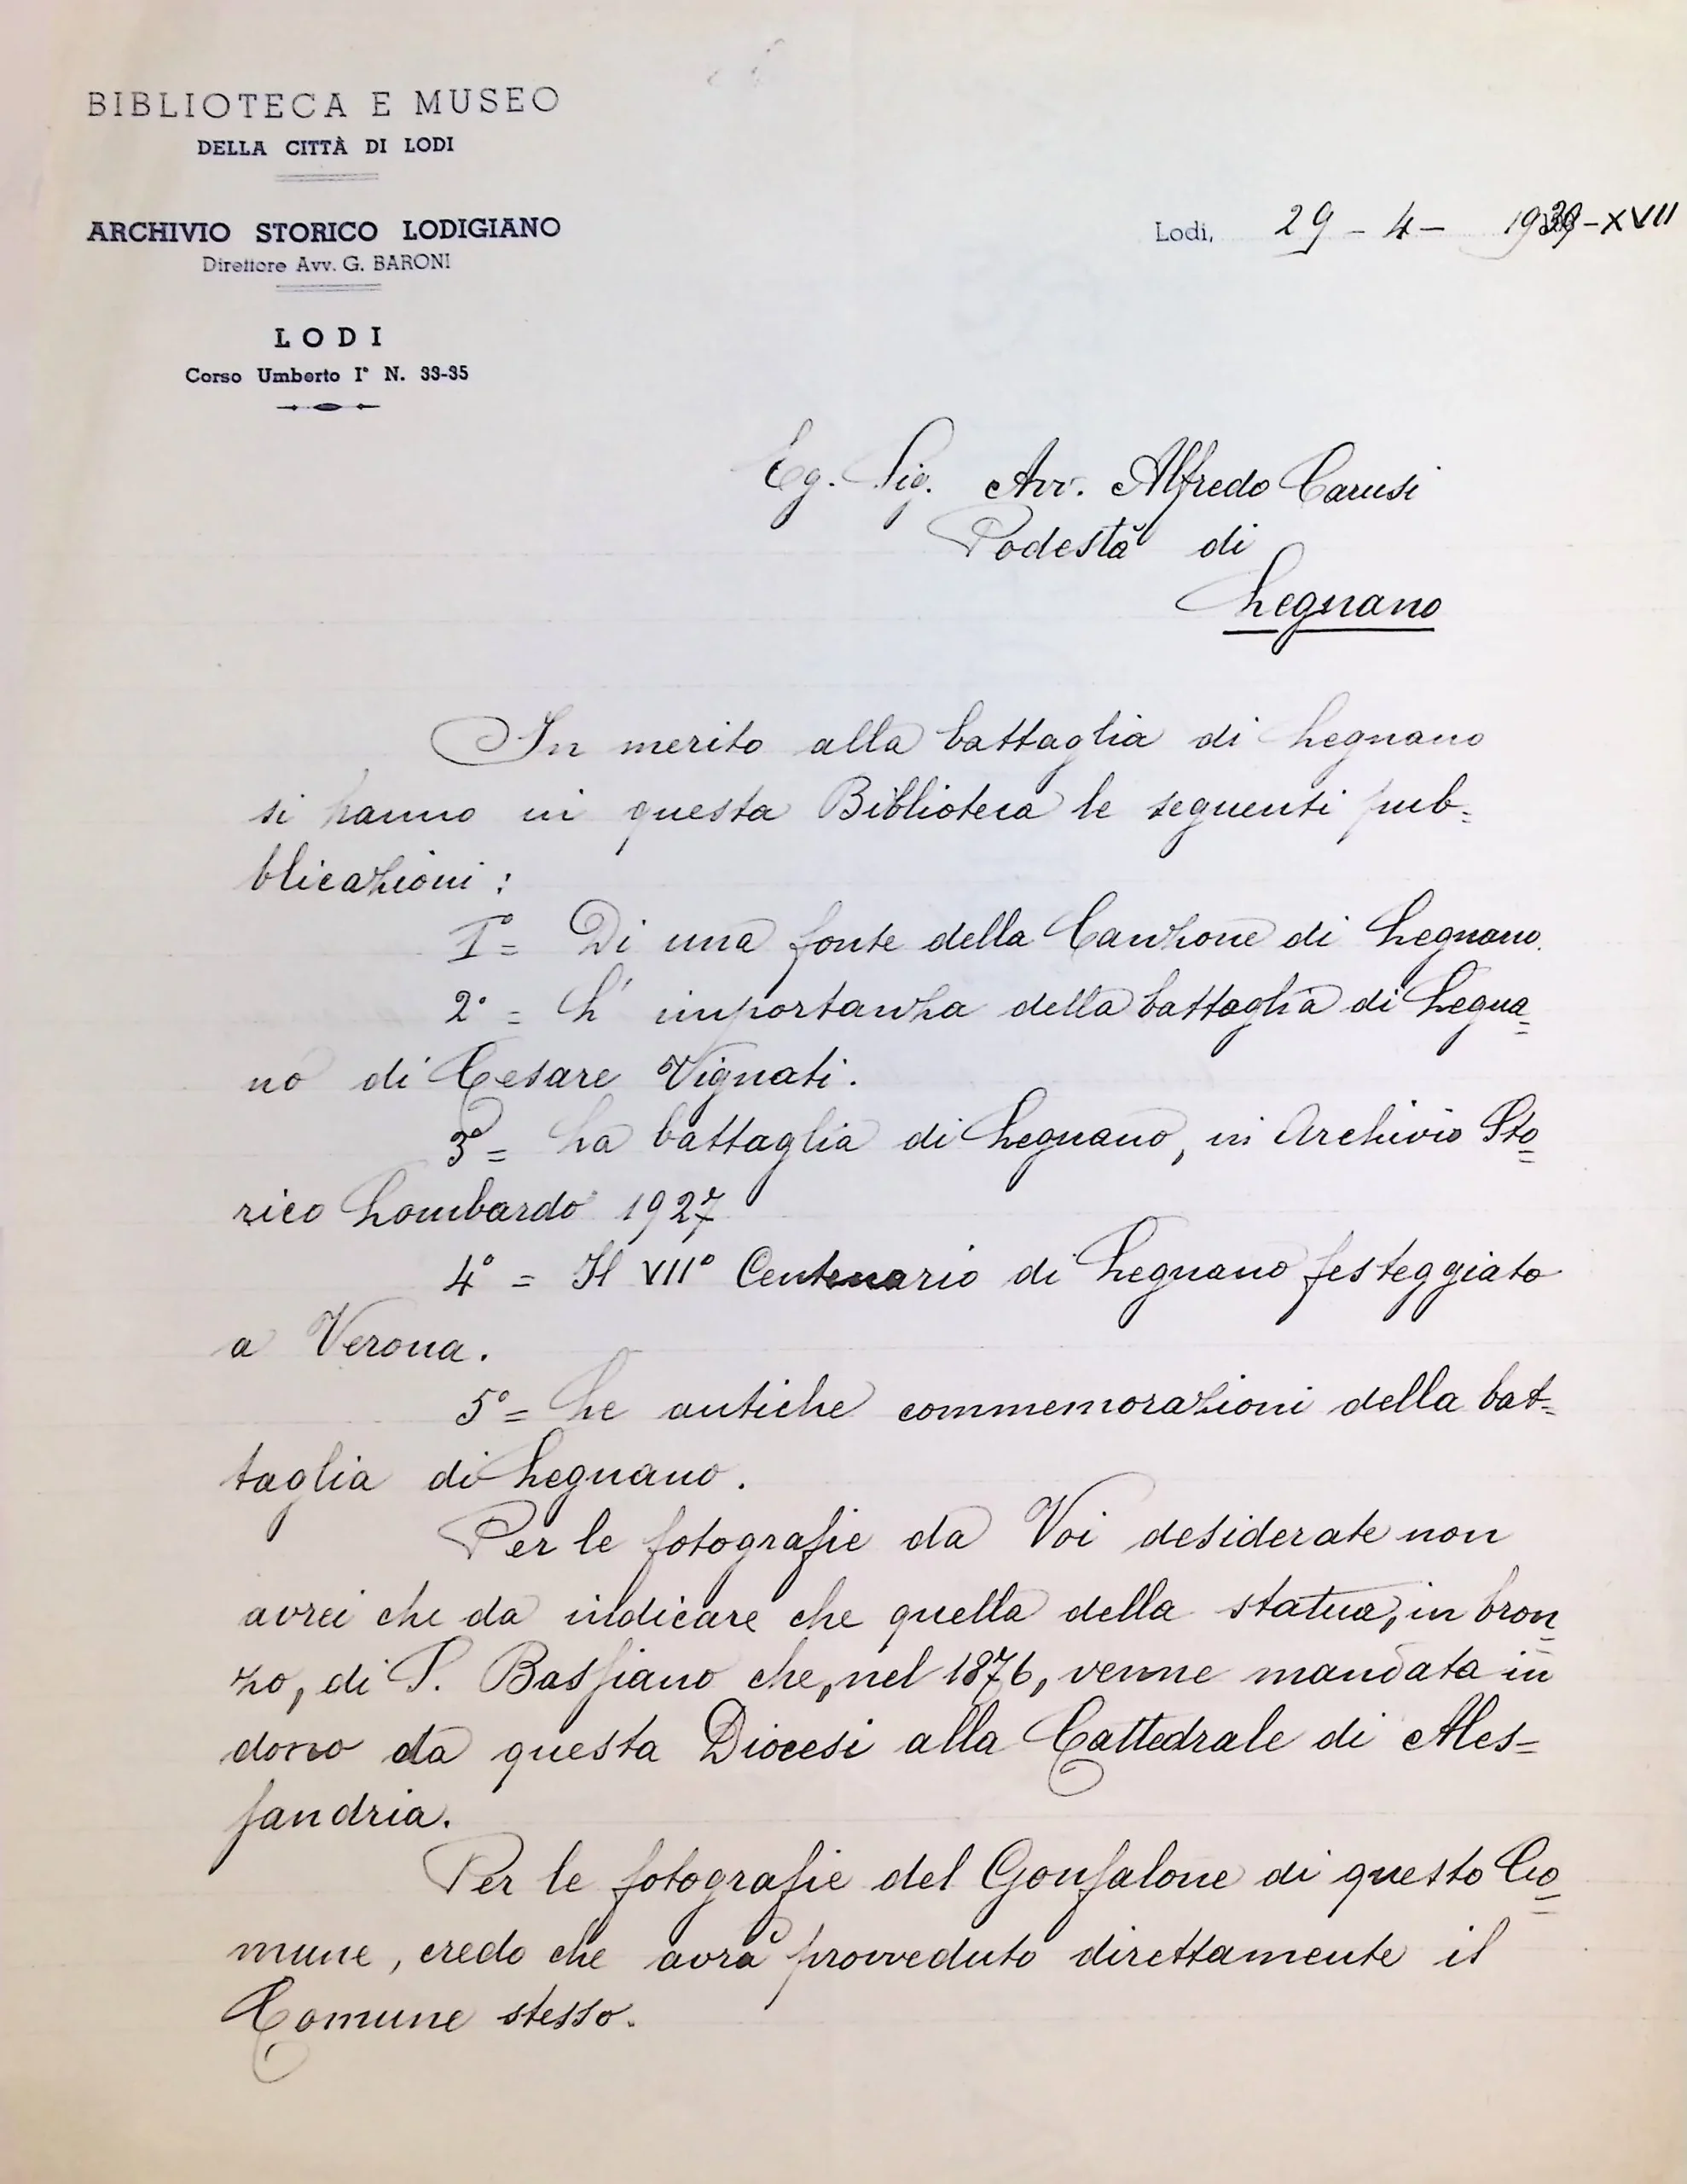 BIBLIOTECA E MUSEO
DELLA CITTÀ DI LODI
ARCHIVIO STORICO LODIGIANO
Direttore Avv. G. BARONI
LODI
Corso Umberto I° N. 33-35
Lodi, 29 - 4 - 1939 - XVII
Eg. Sig. Avv. Alfredo Carusi
Podestà di
Legnano
In merito alla battaglia di Legnano
si hanno in questa Biblioteca le seguenti pub=
blicazioni :
1° = Di una fonte della Canzone di Legnano.
2° = L' importanza della battaglia di Legna=
no di Cesare Vignati.
3° = La battaglia di Legnano, in Archivio Sto=
rico Lombardo 1927
4° = Il VII° Centenario di Legnano festeggiato
a Verona.
5° = Le antiche commemorazioni della bat=
taglia di Legnano.
Per le fotografie da Voi desiderate non
avrei che da indicare che quella della statua, in bron=
zo, di S. Bassiano che, nel 1876, venne mandata in
dono da questa Diocesi alla Cattedrale di Ales=
sandria.
Per le fotografie del Gonfalone di questo Co=
mune, credo che avrà provveduto direttamente il
Comune stesso.